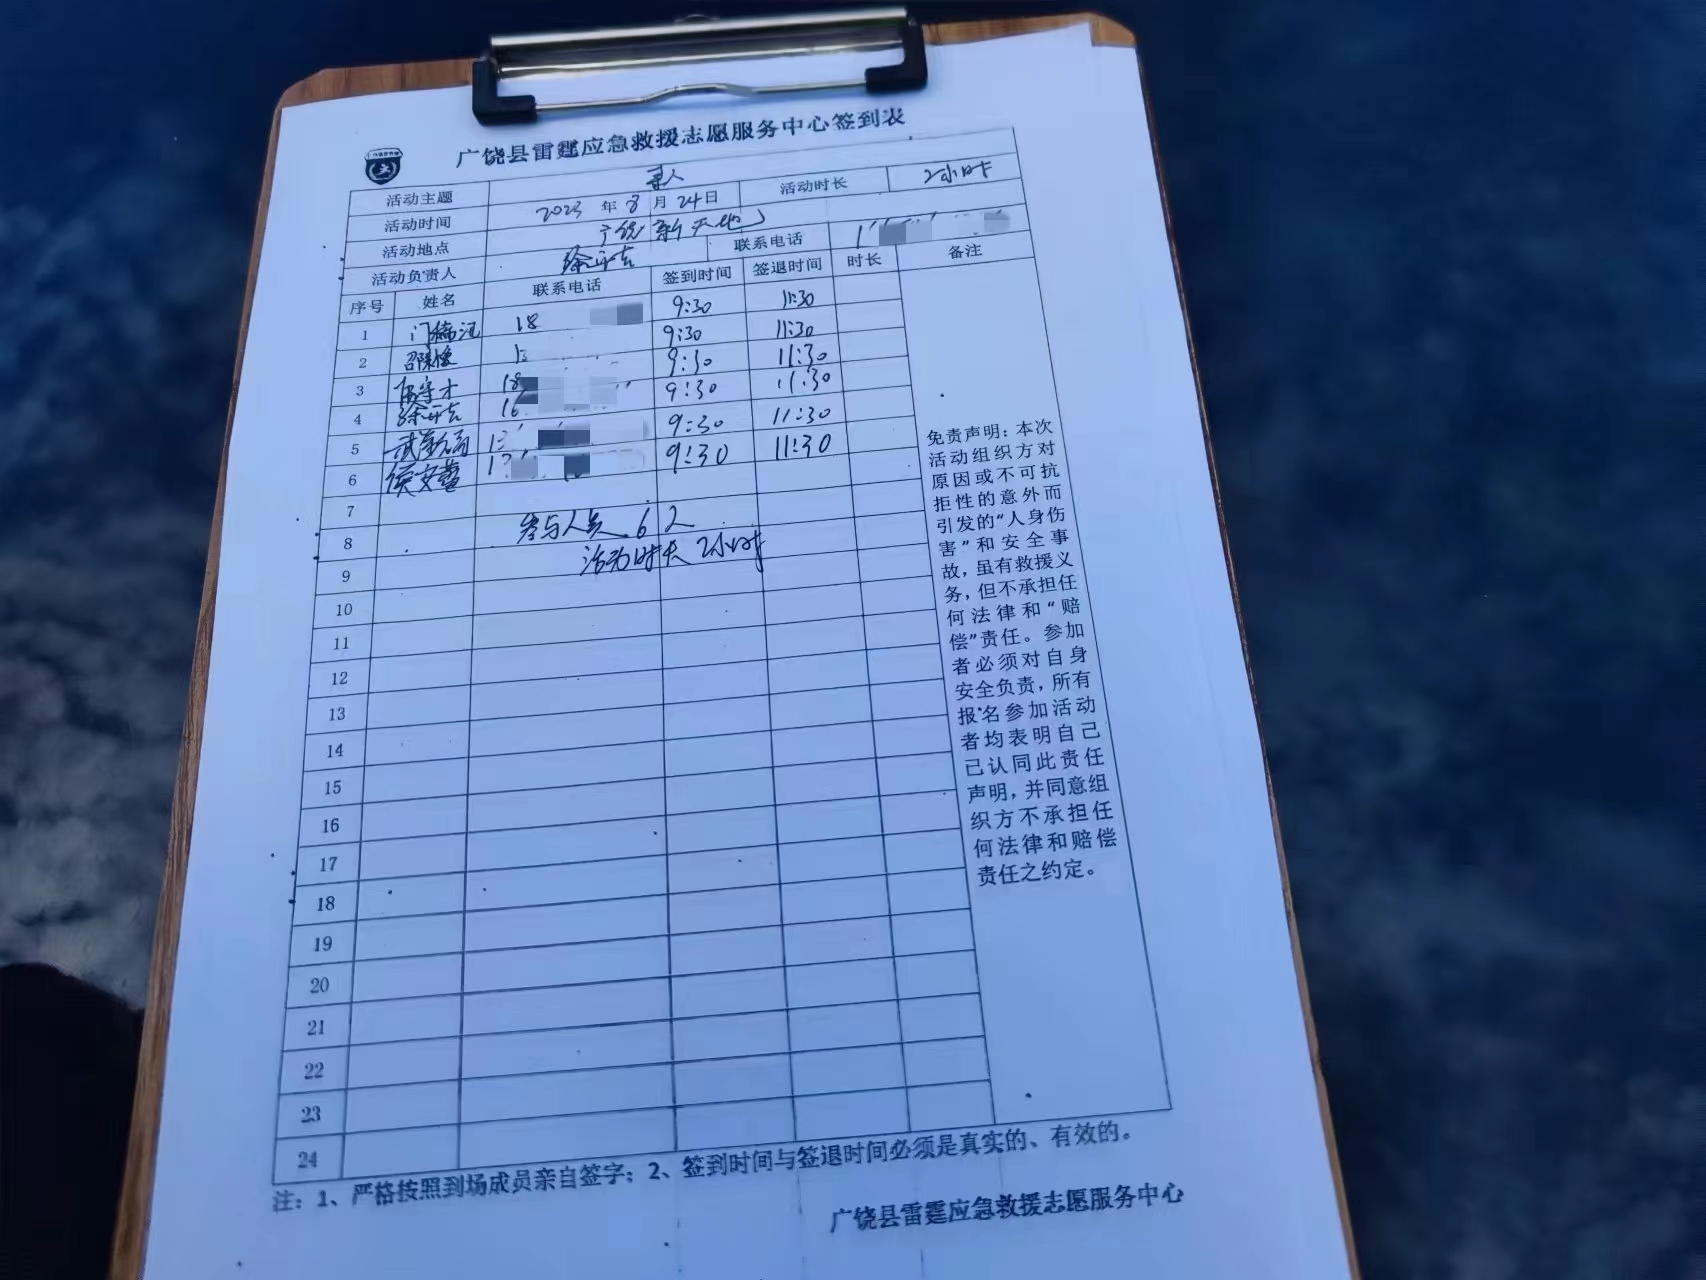 广饶县雷霆应急救援志愿服务中心签到表
活动主题 寻人
活动时间 2023 年 8 月 24 日 活动时长 2小时
活动地点 广饶新天地
活动负责人 联系电话
序号 姓名 联系电话 签到时间 签退时间 时长 备注
1 18 9:30 11:30
2 9:30 11:30
3 18 9:30 11:30
4 16 9:30 11:30
5 13 9:30 11:30
6 侯安 13 9:30 11:30
7
8 参与人员 6人
9 活动时长 2小时
10
11
12
13
14
15
16
17
18
19
20
21
22
23
24
免责声明：本次
活动组织方对
原因或不可抗
拒性的意外而
引发的“人身伤
害”和安全事
故，虽有救援义
务，但不承担任
何法律和“赔
偿”责任。参加
者必须对自身
安全负责，所有
报名参加活动
者均表明自己
已认同此责任
声明，并同意组
织方不承担任
何法律和赔偿
责任之约定。
注：1、严格按照到场成员亲自签字；2、签到时间与签退时间必须是真实的、有效的。
广饶县雷霆应急救援志愿服务中心